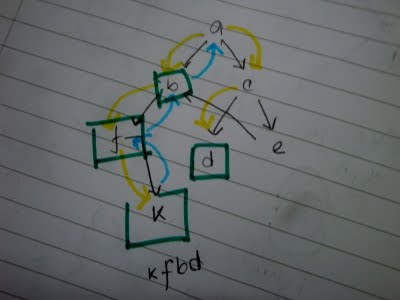 a
b c
f d e
k
kfbd